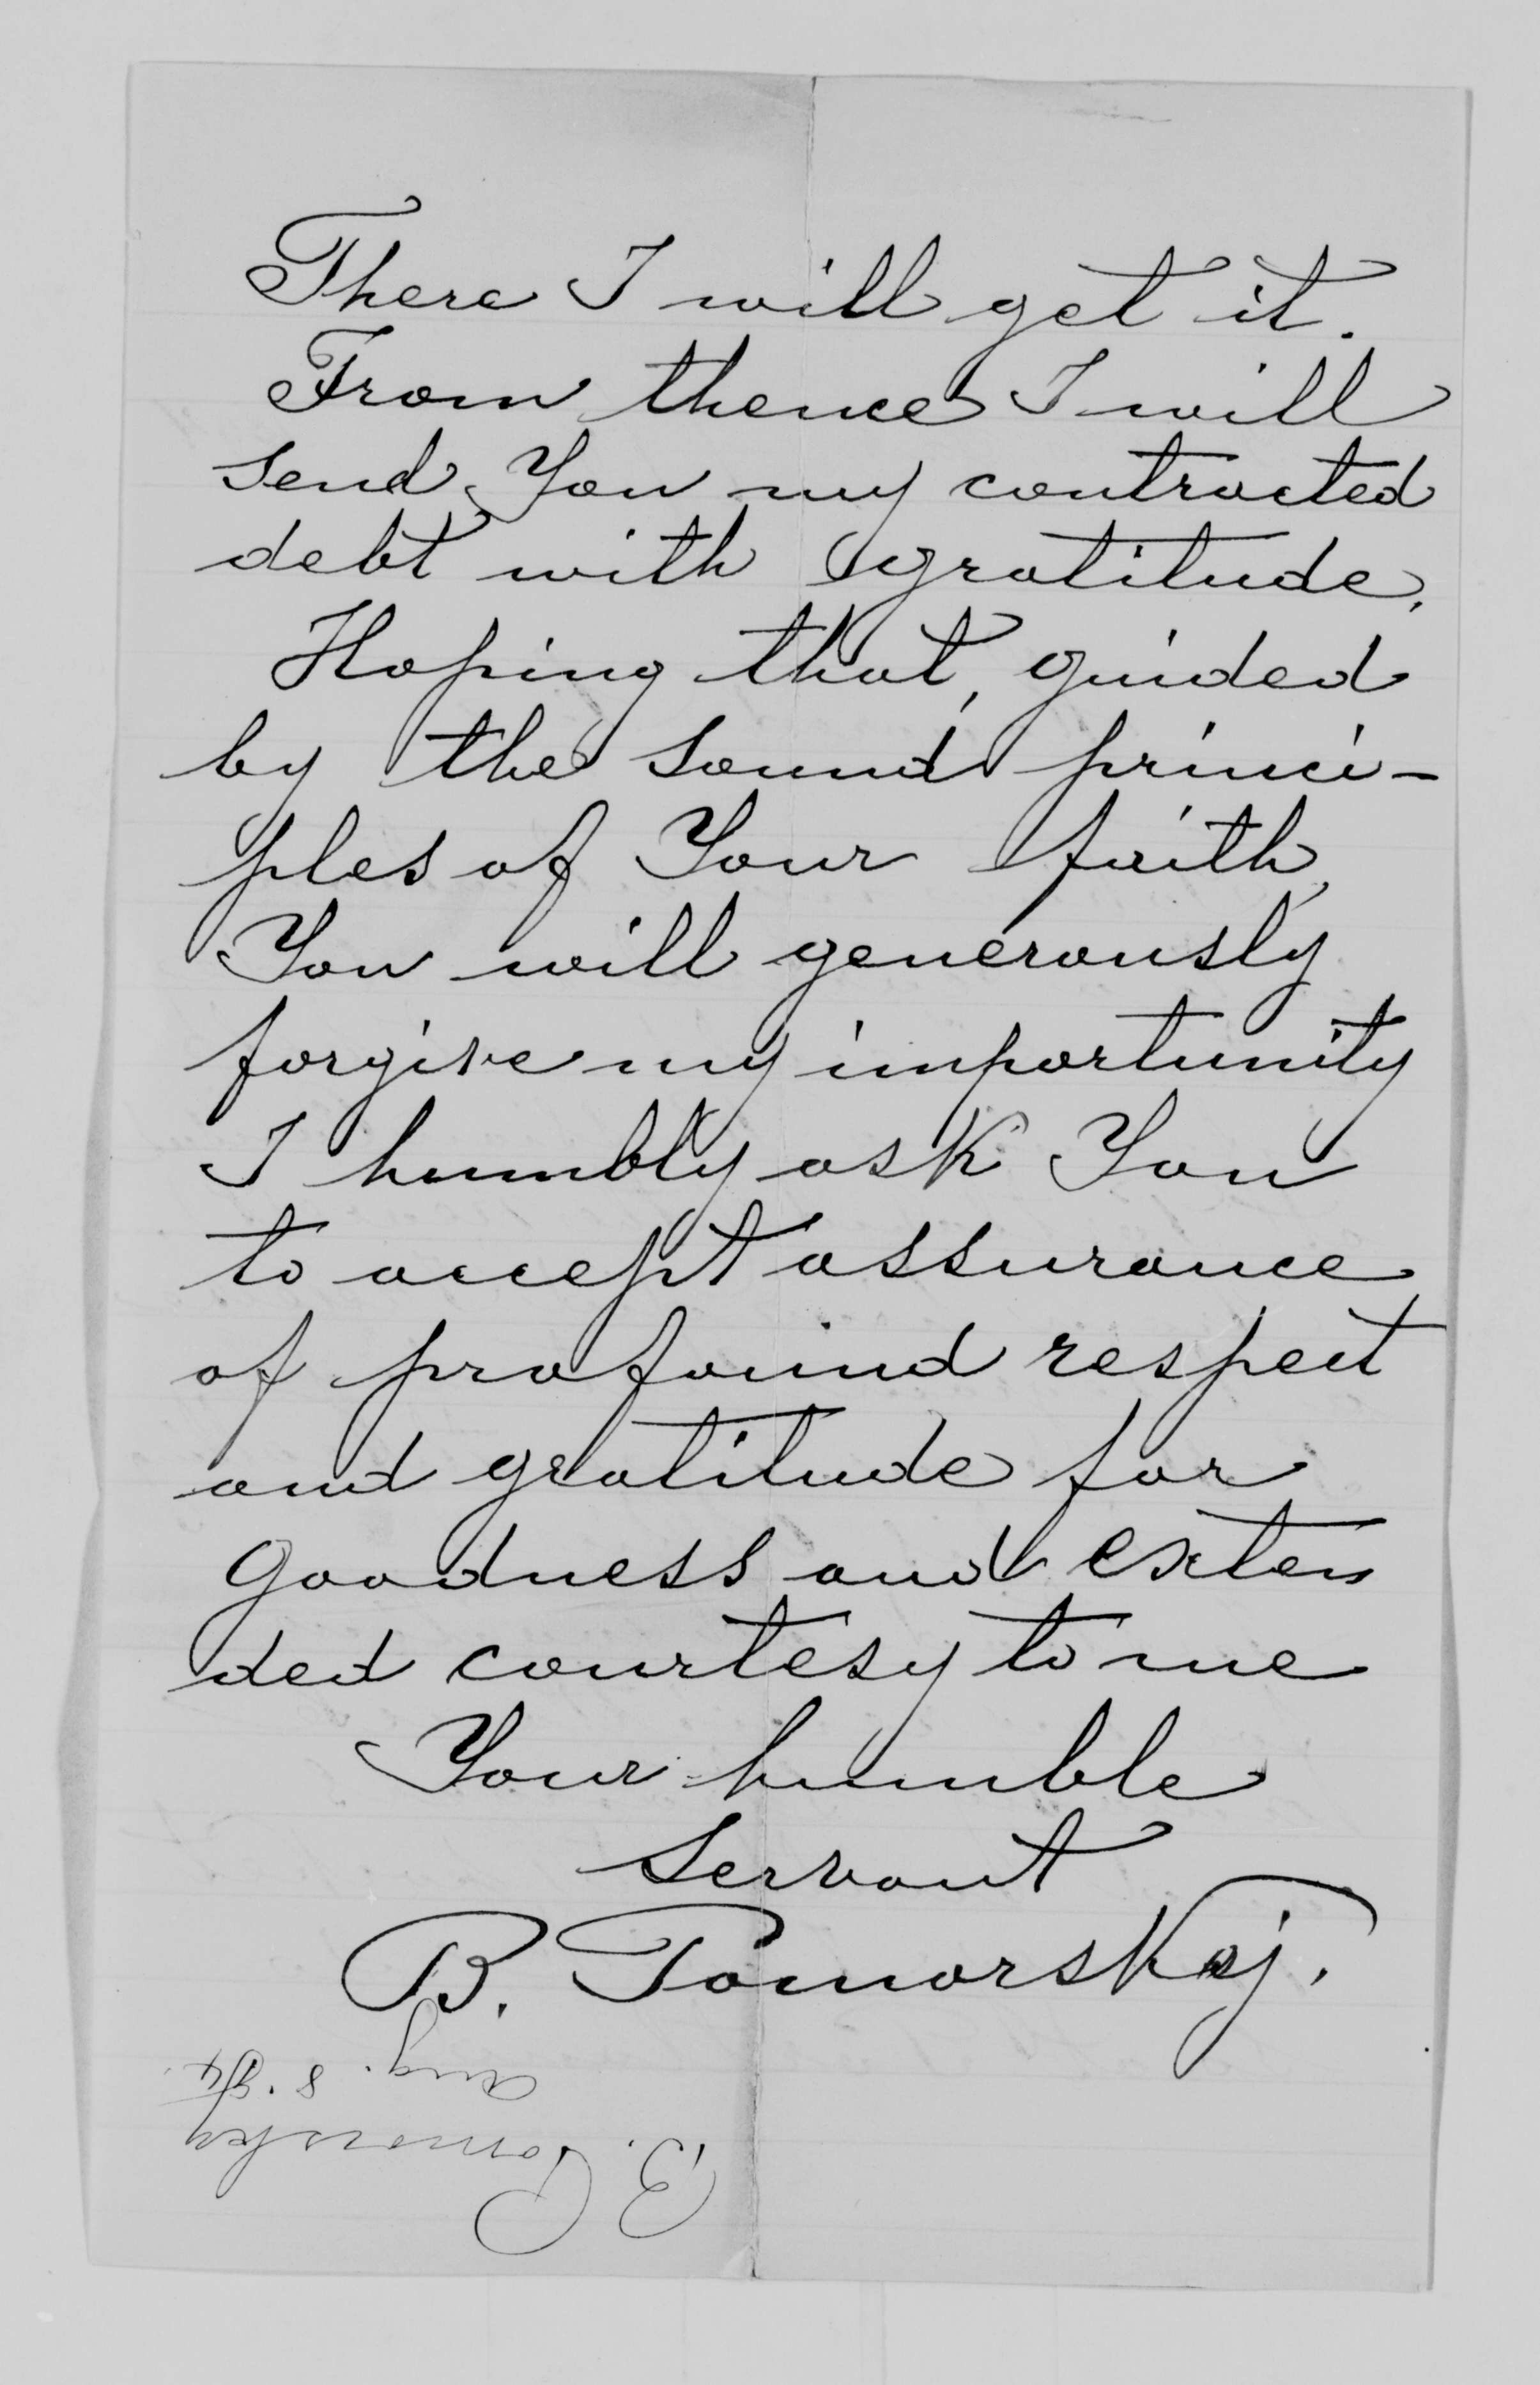 There I will get it.
From thence I will
send You my contracted
debt with gratitude.
Hoping that, guided
by the sound princi-
ples of Your faith,
You will generously
forgive my importunity
I humbly ask You
to accept assurance
of profound respect
and gratitude for
goodness and exten
ded courtesy to me
Your humble
servant
B. Pomorskoj.
B. Pomorsky
Aug. 8. 94.